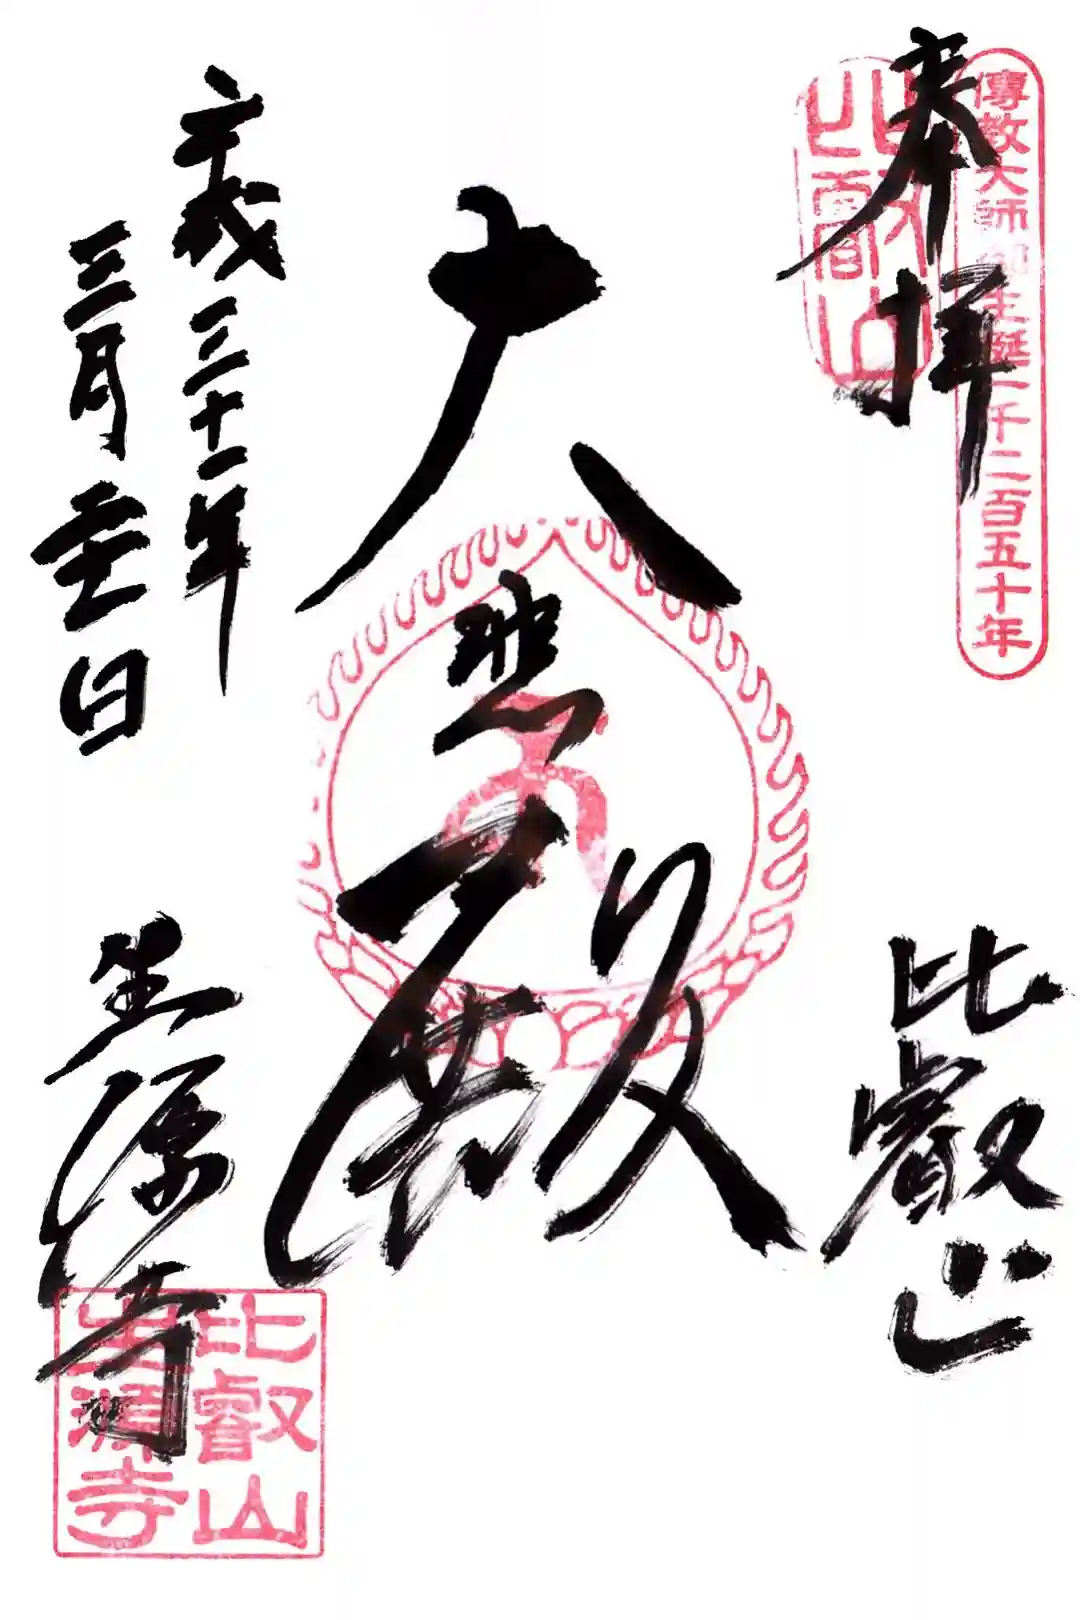 奉拝
傳教大師御生誕一千二百五十年
比叡山
比叡山
大悲殿
平成三十一年
三月二十一日
生源寺
比叡山
生源寺